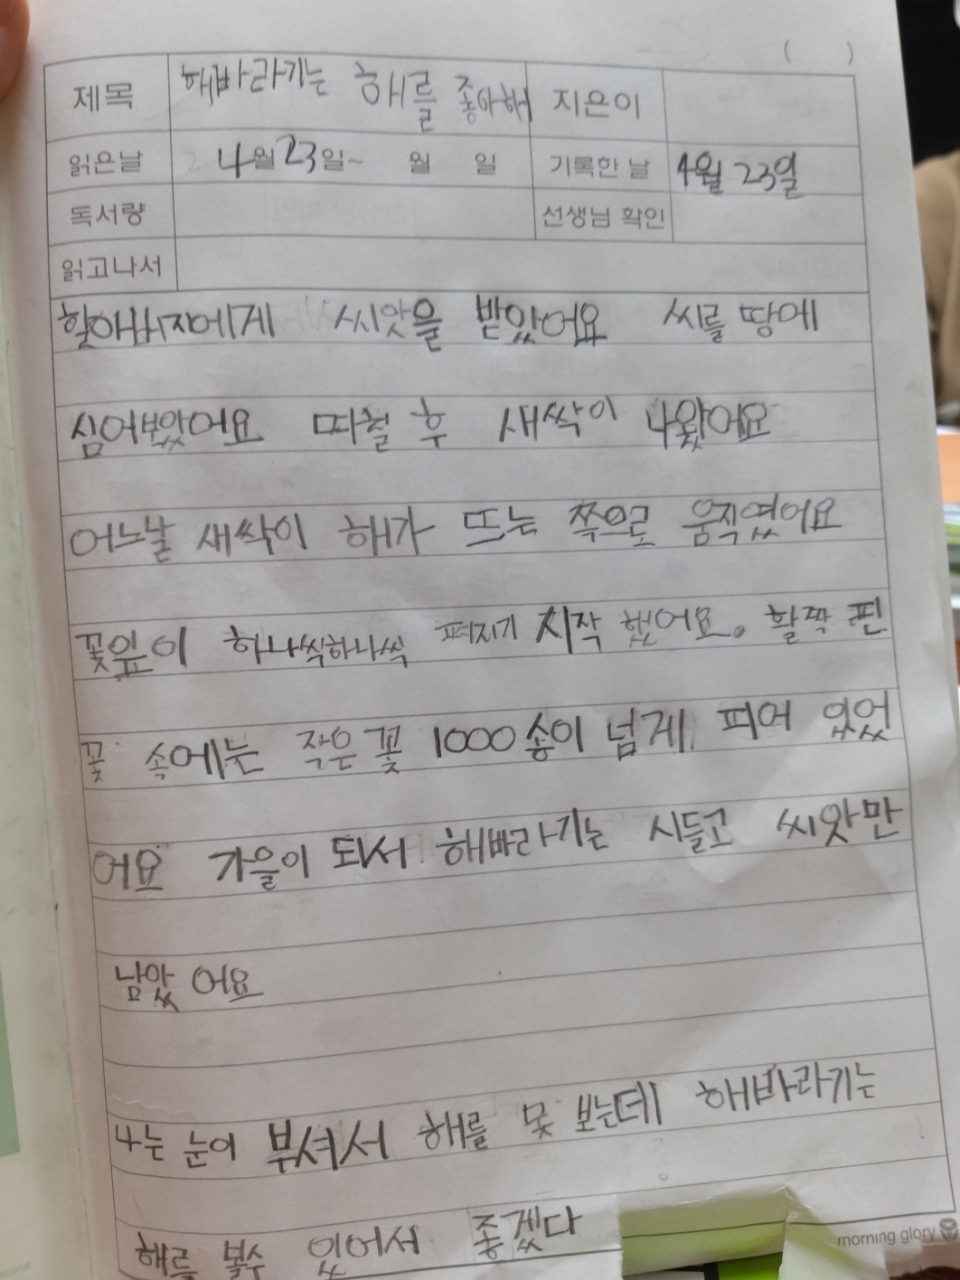 ( )
제목 해바라기는 해를 좋아해 지은이
읽은날 4월 23일~ 월 일 기록한 날 4월 23일
독서량 선생님 확인
읽고나서
할아버지에게 씨앗을 받았어요 씨를 땅에
심어보았어요 며칠 후 새싹이 나왔어요
어느날 새싹이 해가 뜨는 쪽으로 움직였어요
꽃잎이 하나씩하나씩 펴지기 시작 했어요. 활짝 핀
꽃 속에는 작은 꽃 1000송이 넘게 피어 있었
어요 가을이 되서 해바라기는 시들고 씨앗만
남았어요
나는 눈이 부셔서 해를 못 보는데 해바라기는
해를 볼수 있어서 좋겠다
morning glory